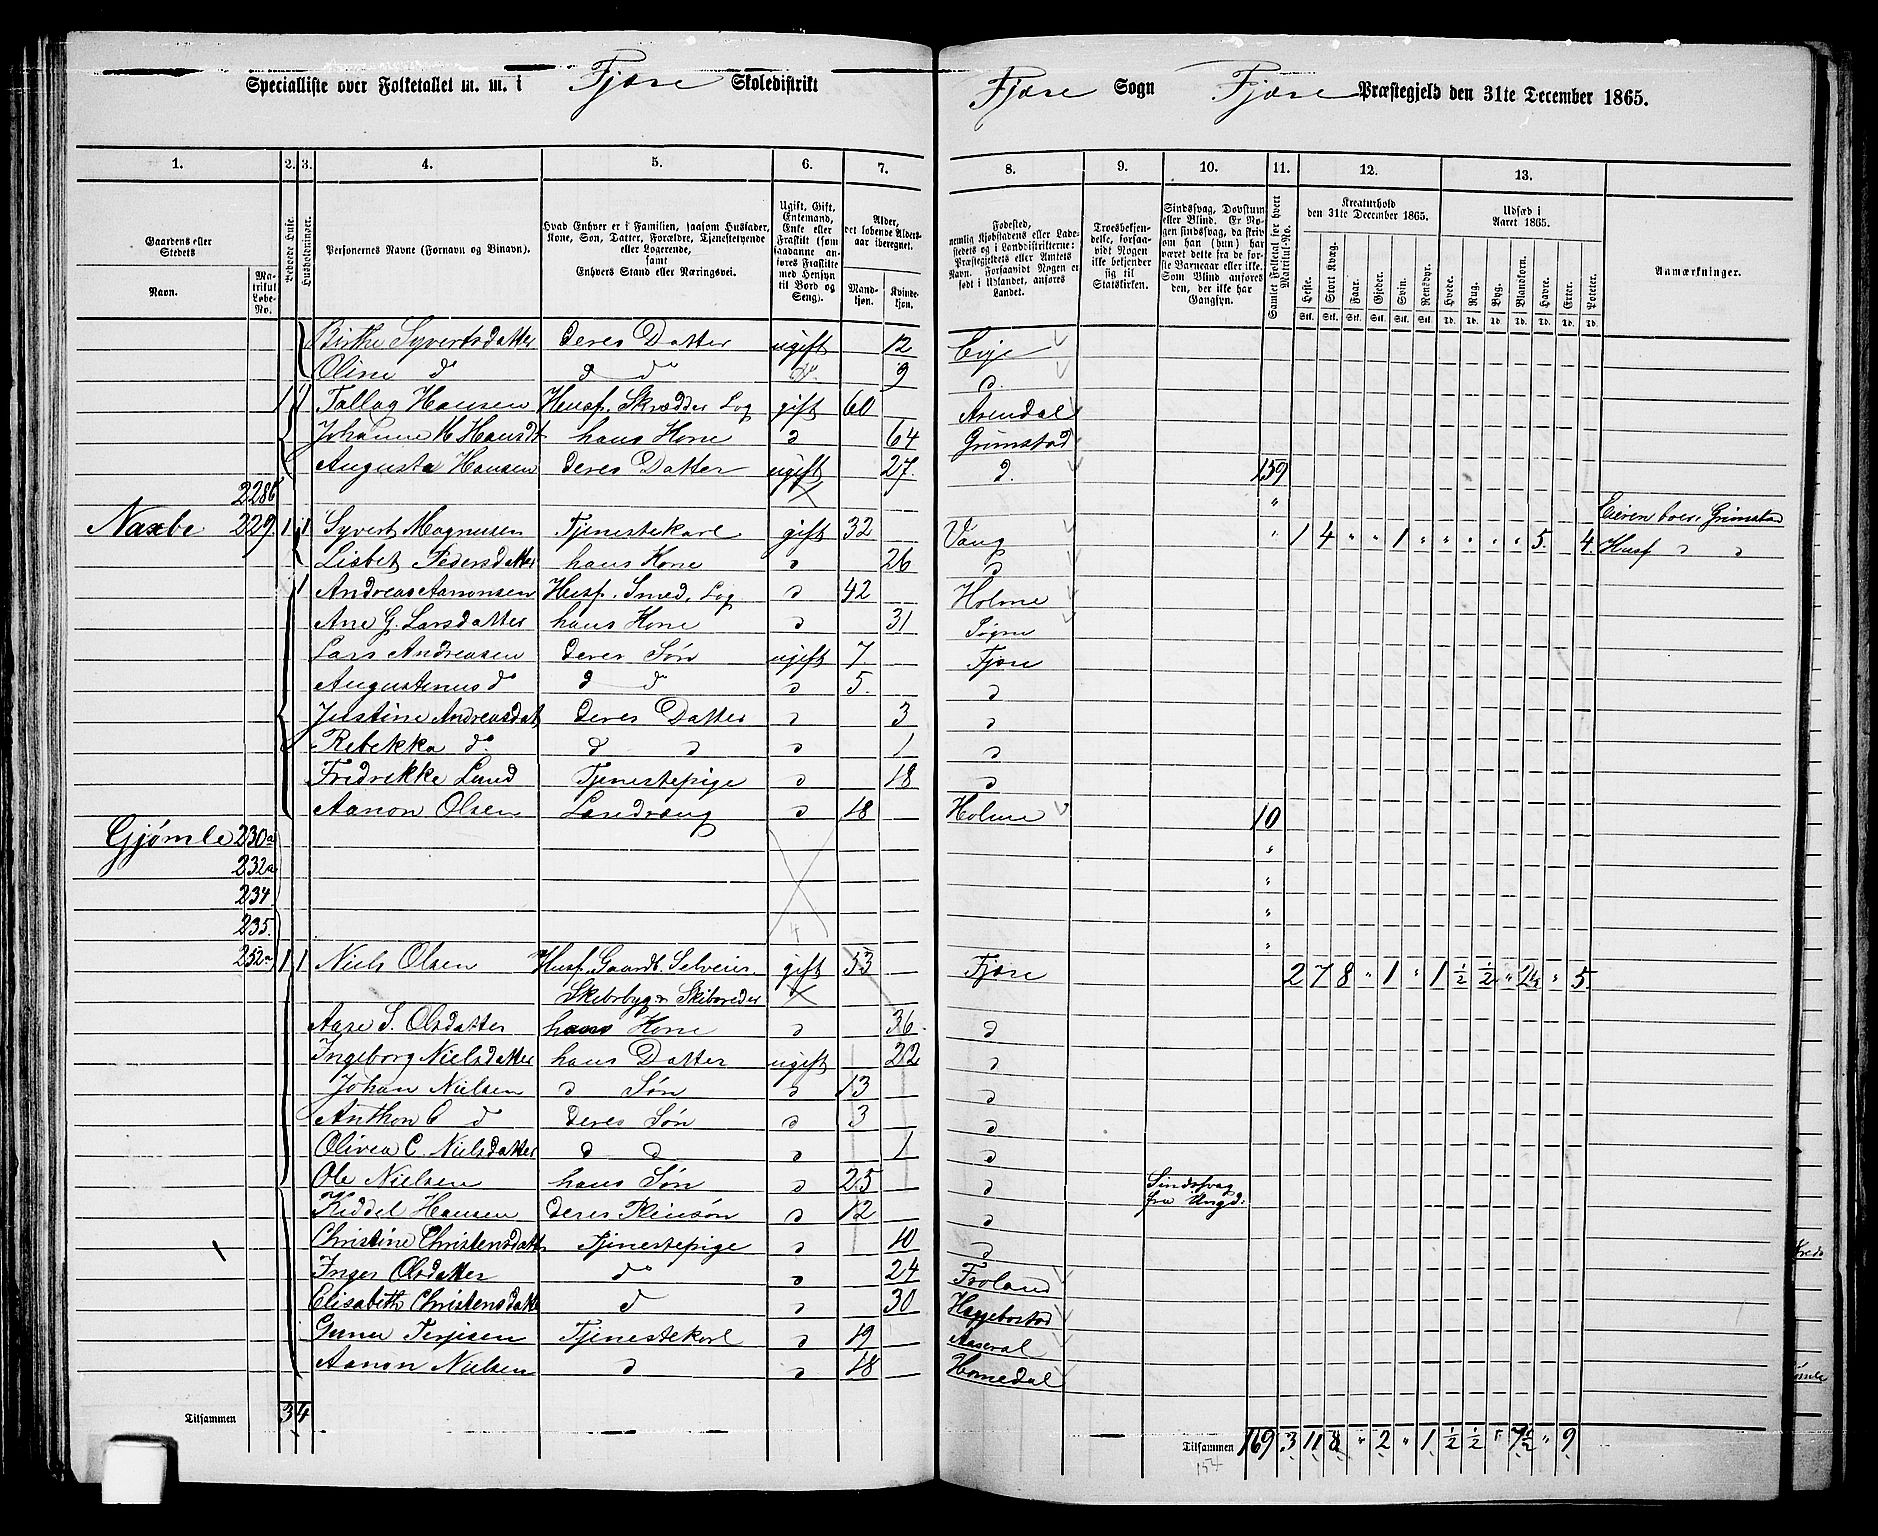 Specialliste over Folketallet m. m. i Fjære Skoledistrikt
Fjære Sogn Fjære Præstegjeld den 31te December 1865.
1. 2. 3. 4. 5. 6. 7. 8. 9. 10. 11. 12. 13.
Gaardens eller Stedets
Navn.
Matrikul Løbe-No.
Beboede Huse.
Husholdninger.
Personernes Navne (Fornavn og Binavn).
Hvad Enhver er i Familien, saasom Husfader, Kone, Søn, Datter, Forældre, Tjenestetyende eller Logerende, samt Enhvers Stand eller Næringsvei.
Ugift, Gift, Enkemand, Enke eller Fraskilt (som saadanne anføres Fraskilte med Hensyn til Bord og Seng).
Alder, det løbende Aldersaar iberegnet.
Mandkjøn. Kvindekjøn.
Fødested, nemlig Kjøbstadens eller Ladestedets og i Landdistrikterne: Præstegjeldets eller Amtets Navn. Forsaavidt Nogen er født i Udlandet, anføres Landet.
Troesbekjendelse, forsaavidt Nogen ikke bekjender sig til Statskirken.
Sindssvag, Døvstum eller Blind. Er Nogen sindssvag, da skriv om han (hun) har været dette fra de første Barneaar eller ikke. Som Blind anføres den, der ikke har Gangsyn.
Samlet Folketal for hvert Matrikul-No.
Kreaturhold den 31te December 1865.
Heste. Stort Kvæg. Faar. Gjeder. Svin. Rensdyr.
Stk. Stk. Stk. Stk. Stk. Stk.
Udsæd i Aaret 1865.
Hvede. Rug. Byg. Blandkorn. Havre. Erter. Poteter.
Td. Td. Td. Td. Td. Td. Td.
Anmærkninger.
Birthe Syvertsdatter Deres Datter ugift 12 Evje
Oline do d do do 9 d.
1 1 Tallag Hansen Husf. Skrædder Log gift 60 Arendal
Johanne M Hansdt hans Kone d 64 Grimstad
Augusta Hansen Deres Datter ugift 27. d. 159
228b "
Naxbe 229. 1 1 Syvert Magnusen Tjenestekarl gift 32 Vang " 1 4 " " 1 " " " " " 5. 4. Eieren boer i Grimstad
Lisbet Pedersdatter hans Kone d 26 d Husf d d
1 Andreas Aanonsen Husf. Smed, Log d 42 Holme
Ane G. Larsdatter hans Kone d 31 Søgne
Lars Andreasen Deres Søn ugift 7 Fjære
Augustinus do d d d 5. d
Justine Andreasdat Deres Datter d 3 d
Rebekka do d d d 1 d
Fredrekke Lund Tjenestepige d 18 d
Aanon Olsen Landvæng d 18 Holme 10
Gjømle 230a "
232a "
234 "
235. "
252a 1 1 Niels Olsen Husf. Gaardb. Selveier. gift 53 Fjære 2 7 8 " 1 " 1 ½ ½ " 2½ " 5.
Skibsbygr Skibsreder
Aase S. Olsdatter hans Kone d 36. d
Ingeborg Nielsdatter hans Datter ugift 22 d
Johan Nielsen d Søn d 13 d
Anthon C d Deres Søn d 3 d
Olivea C. Nielsdatter d d d 1 d
Ole Nielsen hans Søn d 25 d Sindssvag fra Ungd:
Kiddel Hansen Deres Pleiesøn d 12 d
Christine Christensdatt Tjenestepige d 40 d
Inger Olsdatter do d 24 Froland
Elisabeth Christensdatt d d 30 Hægebostad
Guner Terjesen Tjenestekarl d 19 Aaseral
Aanon Nielsen d d 18 Homedal
Tilsammen 3 4
Tilsammen 169 3 11 8 " 2 " 1 ½ ½ " 7½ " 9
154